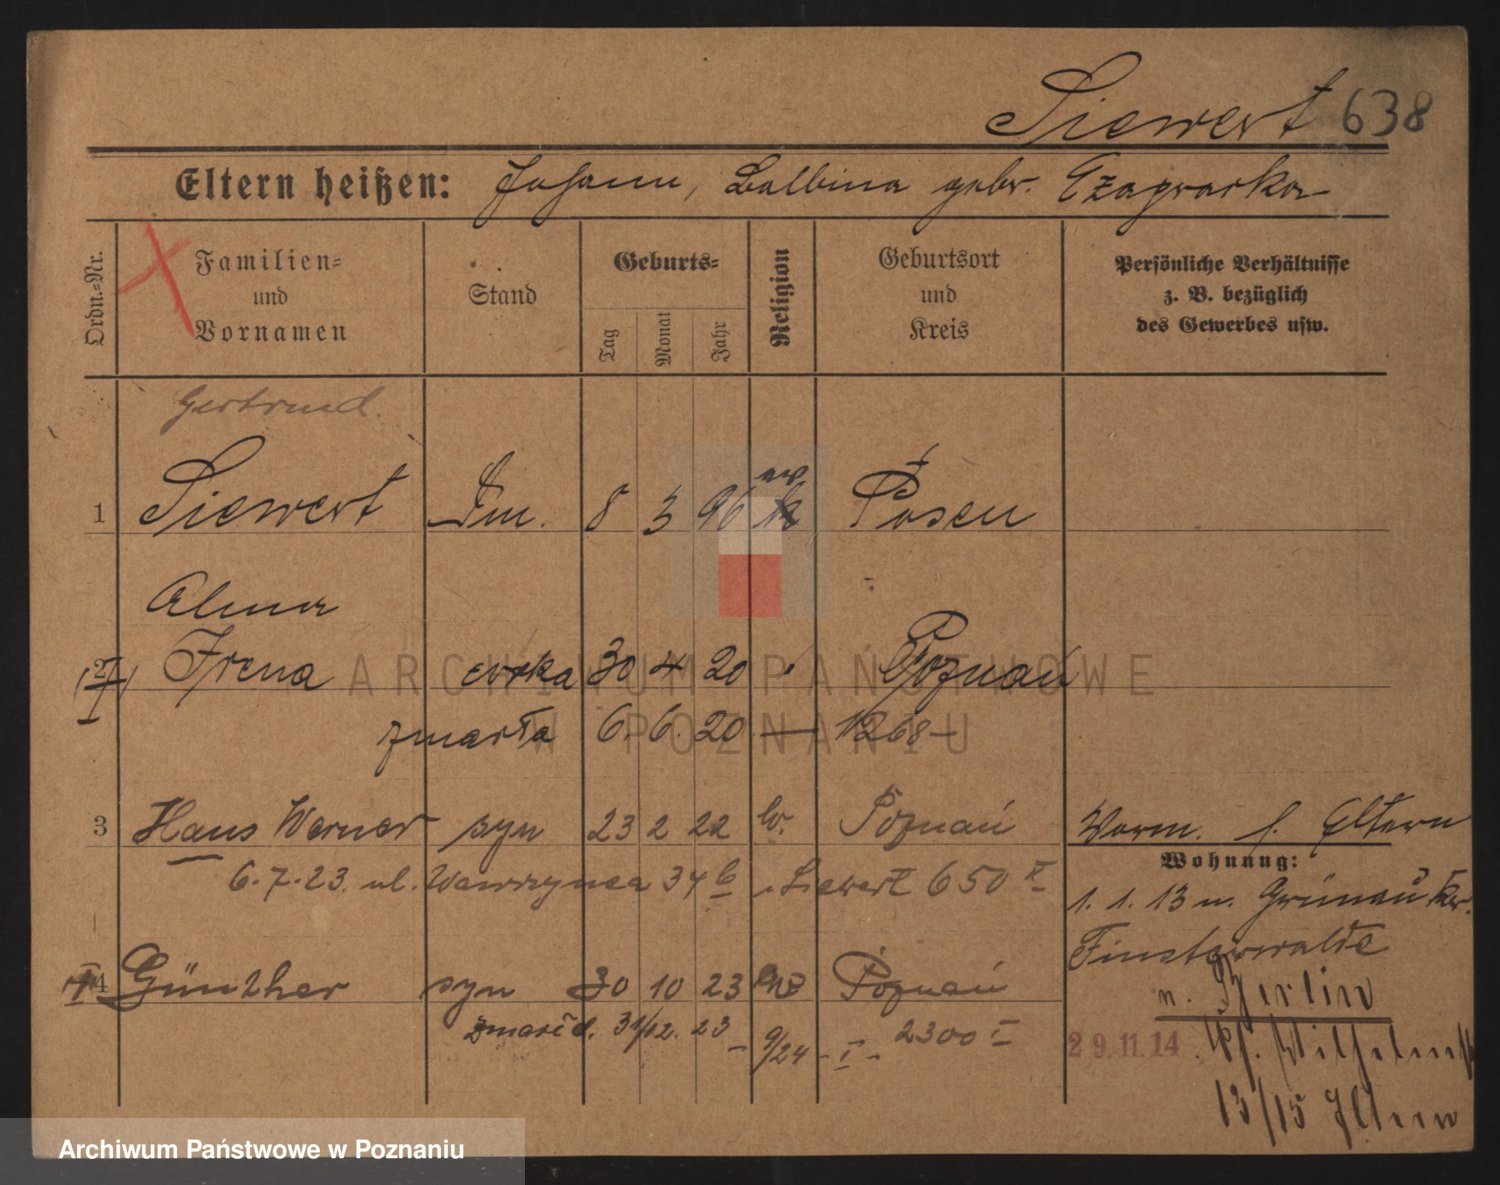 Siewert 638
Eltern heißen: Johann, Balbina gebr. Czapracka
Ordn.-Nr.
Familien- und Vornamen
Stand
Geburts-
Tag
Monat
Jahr
Religion
Geburtsort und Kreis
Persönliche Verhältnisse z. B. bezüglich des Gewerbes usw.
Gertrud.
1 Siewert 8 3 96 k ew Posen
Alma
2 Irena córka 30 4 20 Poznań
zmarła 6. 6. 20 — 1268 —
3 Hans Werner syn 23 2 22 Poznań Worm. s. Eltern
Wohnung:
6.7.23. ul. Wawrzynca 34 b Siewert 650 I
1. 1. 13 n. Grünau Kr.
Finsterwalde
4 Günther syn 30 10 23 Poznań
n. Berlin
zmarł d. 31/12. 23 — 9/24 - I - 2300 I
29.11.14. Wilhelmst
13/15 Eltern
ARCHIWUM PAŃSTWOWE
W POZNANIU
Archiwum Państwowe w Poznaniu